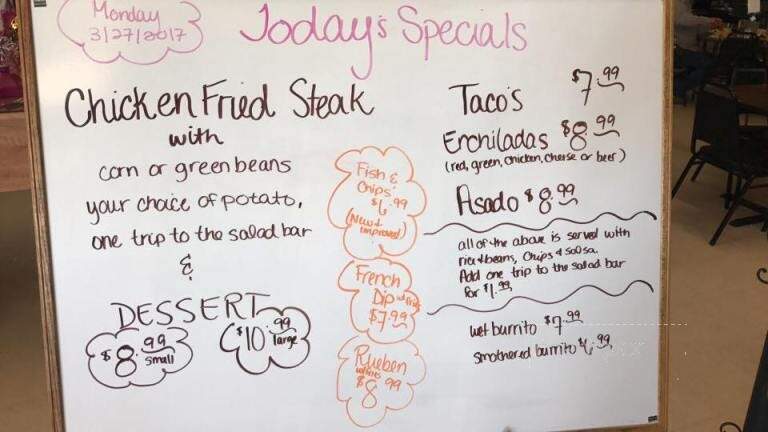 Monday
3/27/2017
Today's Specials
Chicken Fried Steak
with
corn or green beans
your choice of potato,
one trip to the salad bar
&
DESSERT
$8.99 small
$10.99 large
Fish &
Chips
$6.99
(New &
improved)
French
Dip
$7.99
Rueben
$8.99
Taco's $7.99
Enchiladas $8.99
(red, green, chicken, cheese or beef)
Asado $8.99
all of the above is served with
rice & beans, Chips & Salsa.
Add one trip to the salad bar
for $1.99.
wet burrito $7.99
smothered burrito $6.99